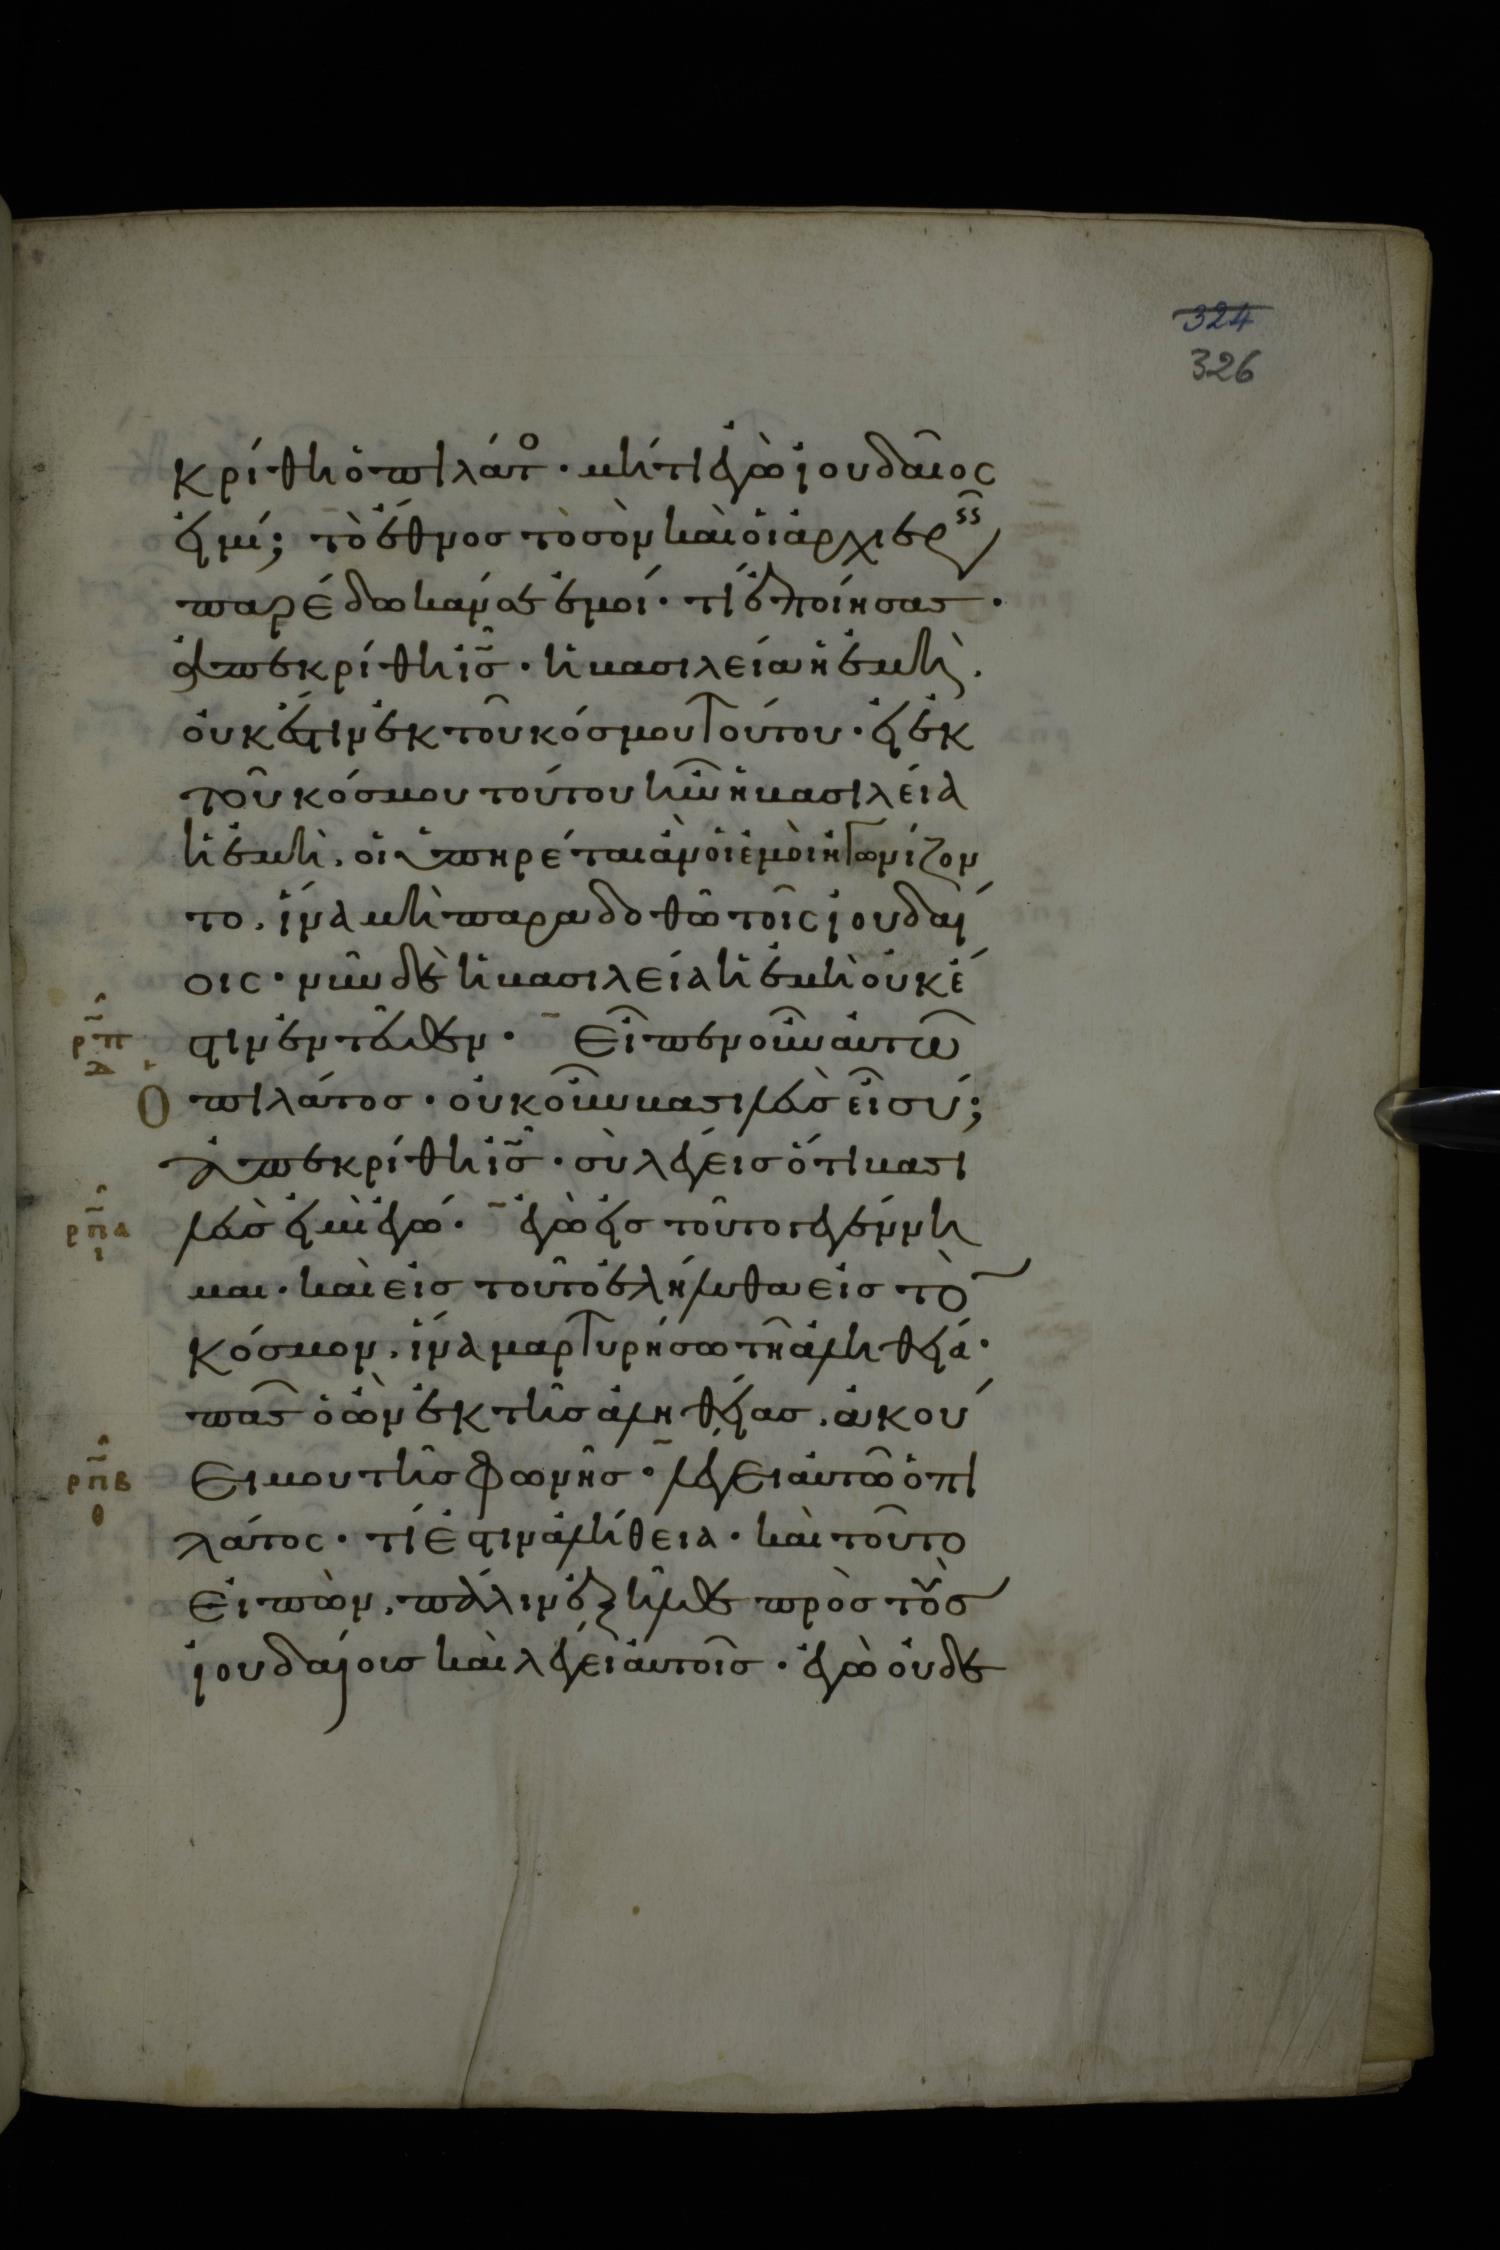 324
326
κρίθη ὁ πιλάτο· μήτι ἐγὼ ἰουδαῖος
εἰμί; τὸ ἔθνος τὸ σὸν καὶ οἱ ἀρχιερεῖς
παρέδωκάν σε ἐμοί· τί ἐποίησας·
ἀπεκρίθη ἰς̃· ἡ βασιλεία ἡ ἐμὴ.
οὐκ ἔστιν ἐκ τοῦ κόσμου τούτου· εἰ ἐκ
τοῦ κόσμου τούτου ἦν ἡ βασιλεία
ἡ ἐμὴ. οἱ ὑπηρέται ἂν οἱ ἐμοὶ ἠγωνίζον
το. ἵνα μὴ παραδοθῶ τοῖς ἰουδαί
οις· νῦν δὲ ἡ βασιλεία ἡ ἐμὴ οὐκ έ
ρπ
δ
στιν ἐντεῦθεν· Εἶπεν οὖν αὐτῶ
Ο πιλάτος· οὐκοῦν βασιλεὺς εἶ σύ;
ἀπεκρίθη ἰς̃· σὺ λέγεις ὅτι βασι
ρπα
ι
λεὺς εἰμὶ ἐγώ· ἐγὼ εἰς τοῦτο γεγέννη
μαι· καὶ εἰς τοῦτο ἐλήλυθα εἰς τὸ
κόσμον. ἵνα μαρτυρήσω τῆ ἀληθεία·
πας ὁ ὢν ἐκ τῆς ἀληθείας. ἀκού
ρπβ
θ
ει μου τῆς φωνῆς· λέγει αὐτῶ ὁ πι
λάτος· τί ἐστιν ἀλήθεια· καὶ τοῦτο
εἰπὼν. πάλιν ἐξῆλθε πρὸς τοὺς
ἰουδαίοις καὶ λέγει αὐτοῖς· ἐγὼ οὐδε